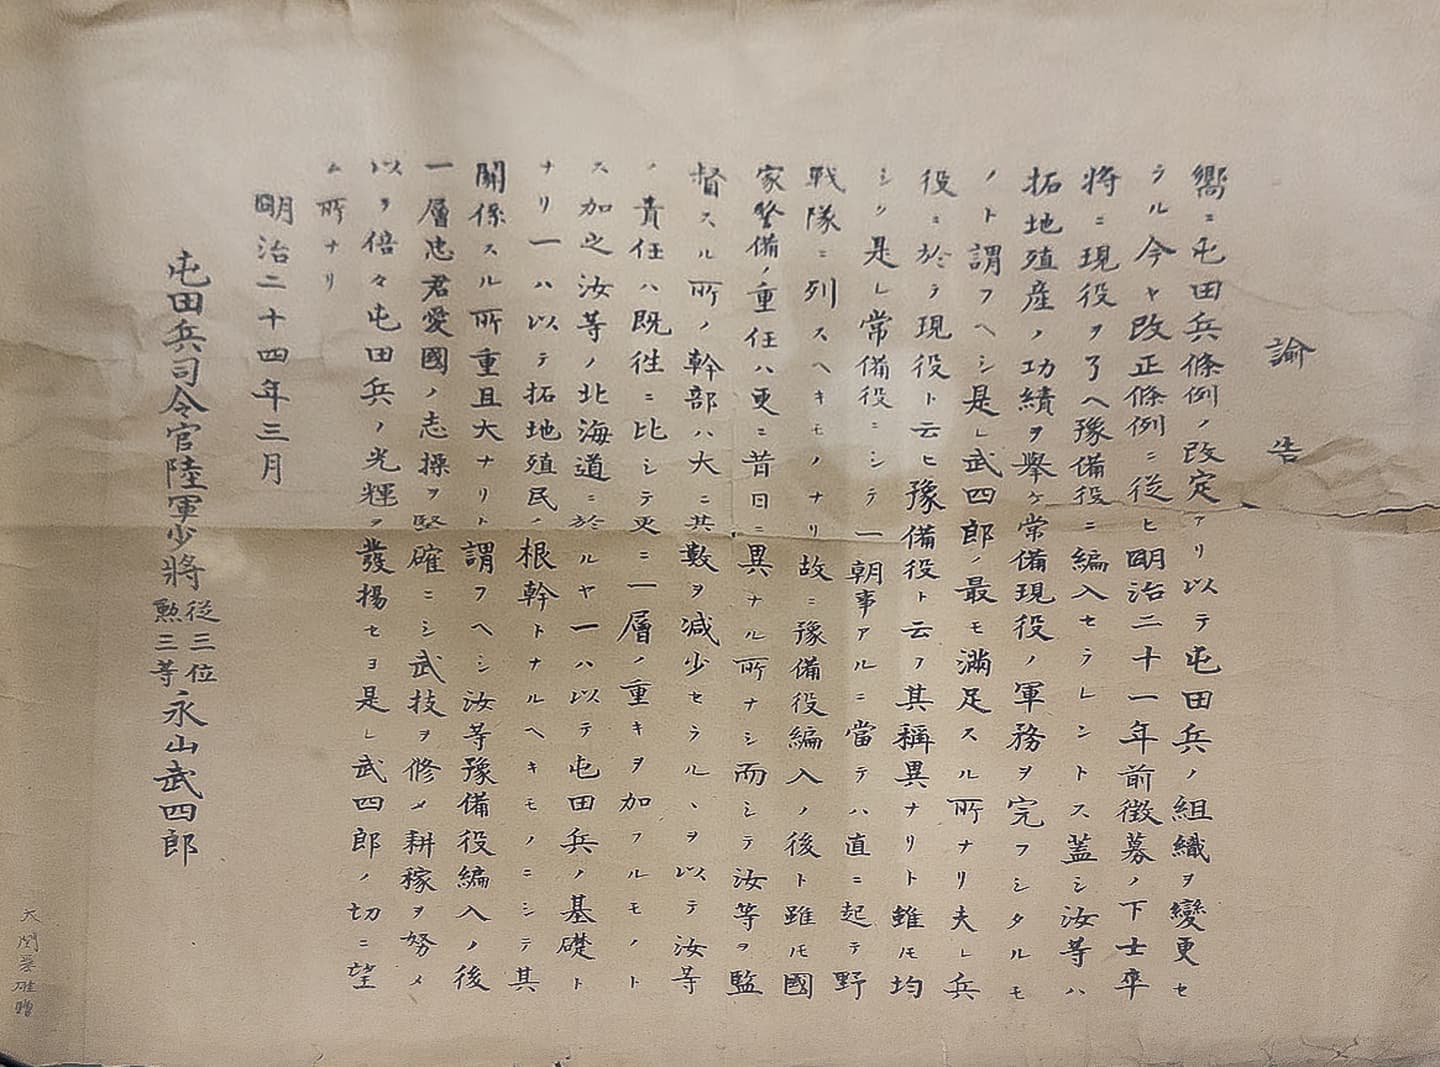 諭告
嚮ニ屯田兵條例ノ改定アリ以テ屯田兵ノ組織ヲ變更セ
ラル今ヤ改正條例ニ從ヒ明治二十一年前徴募ノ下士卒
將ニ現役ヲ了ヘ豫備役ニ編入セラレントス蓋シ汝等ハ
拓地殖産ノ功績ヲ舉ケ常備現役ノ軍務ヲ完フシタルモ
ノト謂フヘシ是レ武四郎ノ最モ滿足スル所ナリ夫レ兵
役ニ於テ現役ト云ヒ豫備役ト云フ其稱異ナリト雖モ均
シク是レ常備役ニシテ一朝事アルニ當テハ直ニ起テ野
戰隊ニ列スヘキモノナリ故ニ豫備役編入ノ後ト雖モ國
家警備ノ重任ハ更ニ昔日ニ異ナル所ナシ而シテ汝等ヲ監
督スル所ノ幹部ハ大ニ其數ヲ減少セラルヽヲ以テ汝等
ノ責任ハ既往ニ比シテ更ニ一層ノ重キヲ加フルモノト
ス加之汝等ノ北海道ニ於ルヤ一ハ以テ屯田兵ノ基礎ト
ナリ一ハ以テ拓地殖民ノ根幹トナルヘキモノニシテ其
關係スル所重且大ナリト謂フヘシ汝等豫備役編入ノ後
一層忠君愛國ノ志操ヲ堅確ニシ武技ヲ修メ耕稼ヲ努メ
以テ倍々屯田兵ノ光輝ヲ發揚セヨ是レ武四郎ノ切ニ望
ム所ナリ
明治二十四年三月
屯田兵司令官陸軍少將從三位勲三等永山武四郎